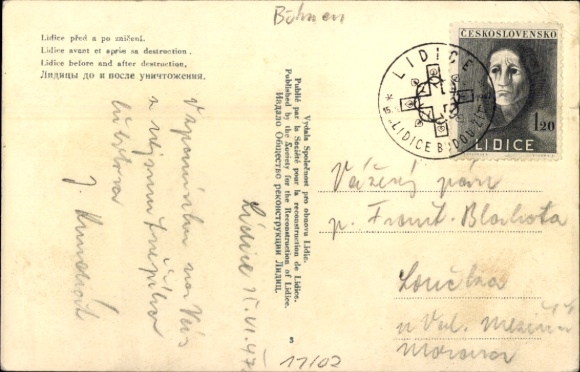 Böhmen
Lidice před a po zničení.
Lidice avant et après sa destruction.
Lidice before and after destruction.
Лидицы до и после уничтожения.
Vzpomínku na Vás
J.
Lidice 15.VI.47
Vydala Společnost pro obnovu Lidic.
Publié par la Société pour la reconstruction de Lidice.
Published by the Society for the Reconstruction of Lidice.
Издало Общество реконструкции Лидиц.
5
11/02
ČESKOSLOVENSKO
1.20
LIDICE
LIDICE
LIDICE BUDOU ŽÍT
Vážený pán
p. Frant. Blahota
Loučka
u Val. Meziříčí
Morava